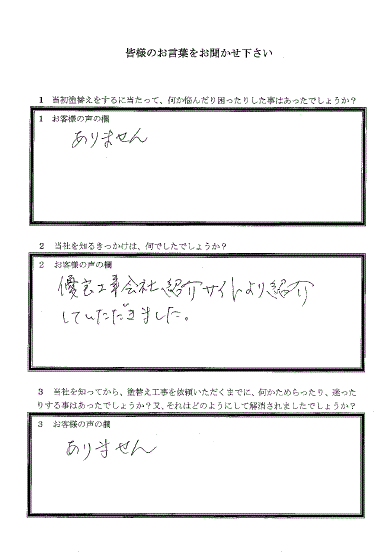 皆様のお言葉をお聞かせ下さい
1 当初塗替えをするに当たって、何か悩んだり困ったりした事はあったでしょうか?
1 お客様の声の欄
ありません
2 当社を知るきっかけは、何でしたでしょうか?
2 お客様の声の欄
優良工事会社紹介サイトより紹介
していただきました。
3 当社を知ってから、塗替え工事を依頼いただくまでに、何かためらったり、迷った
りする事はあったでしょうか?又、それはどのようにして解消されましたでしょうか?
3 お客様の声の欄
ありません